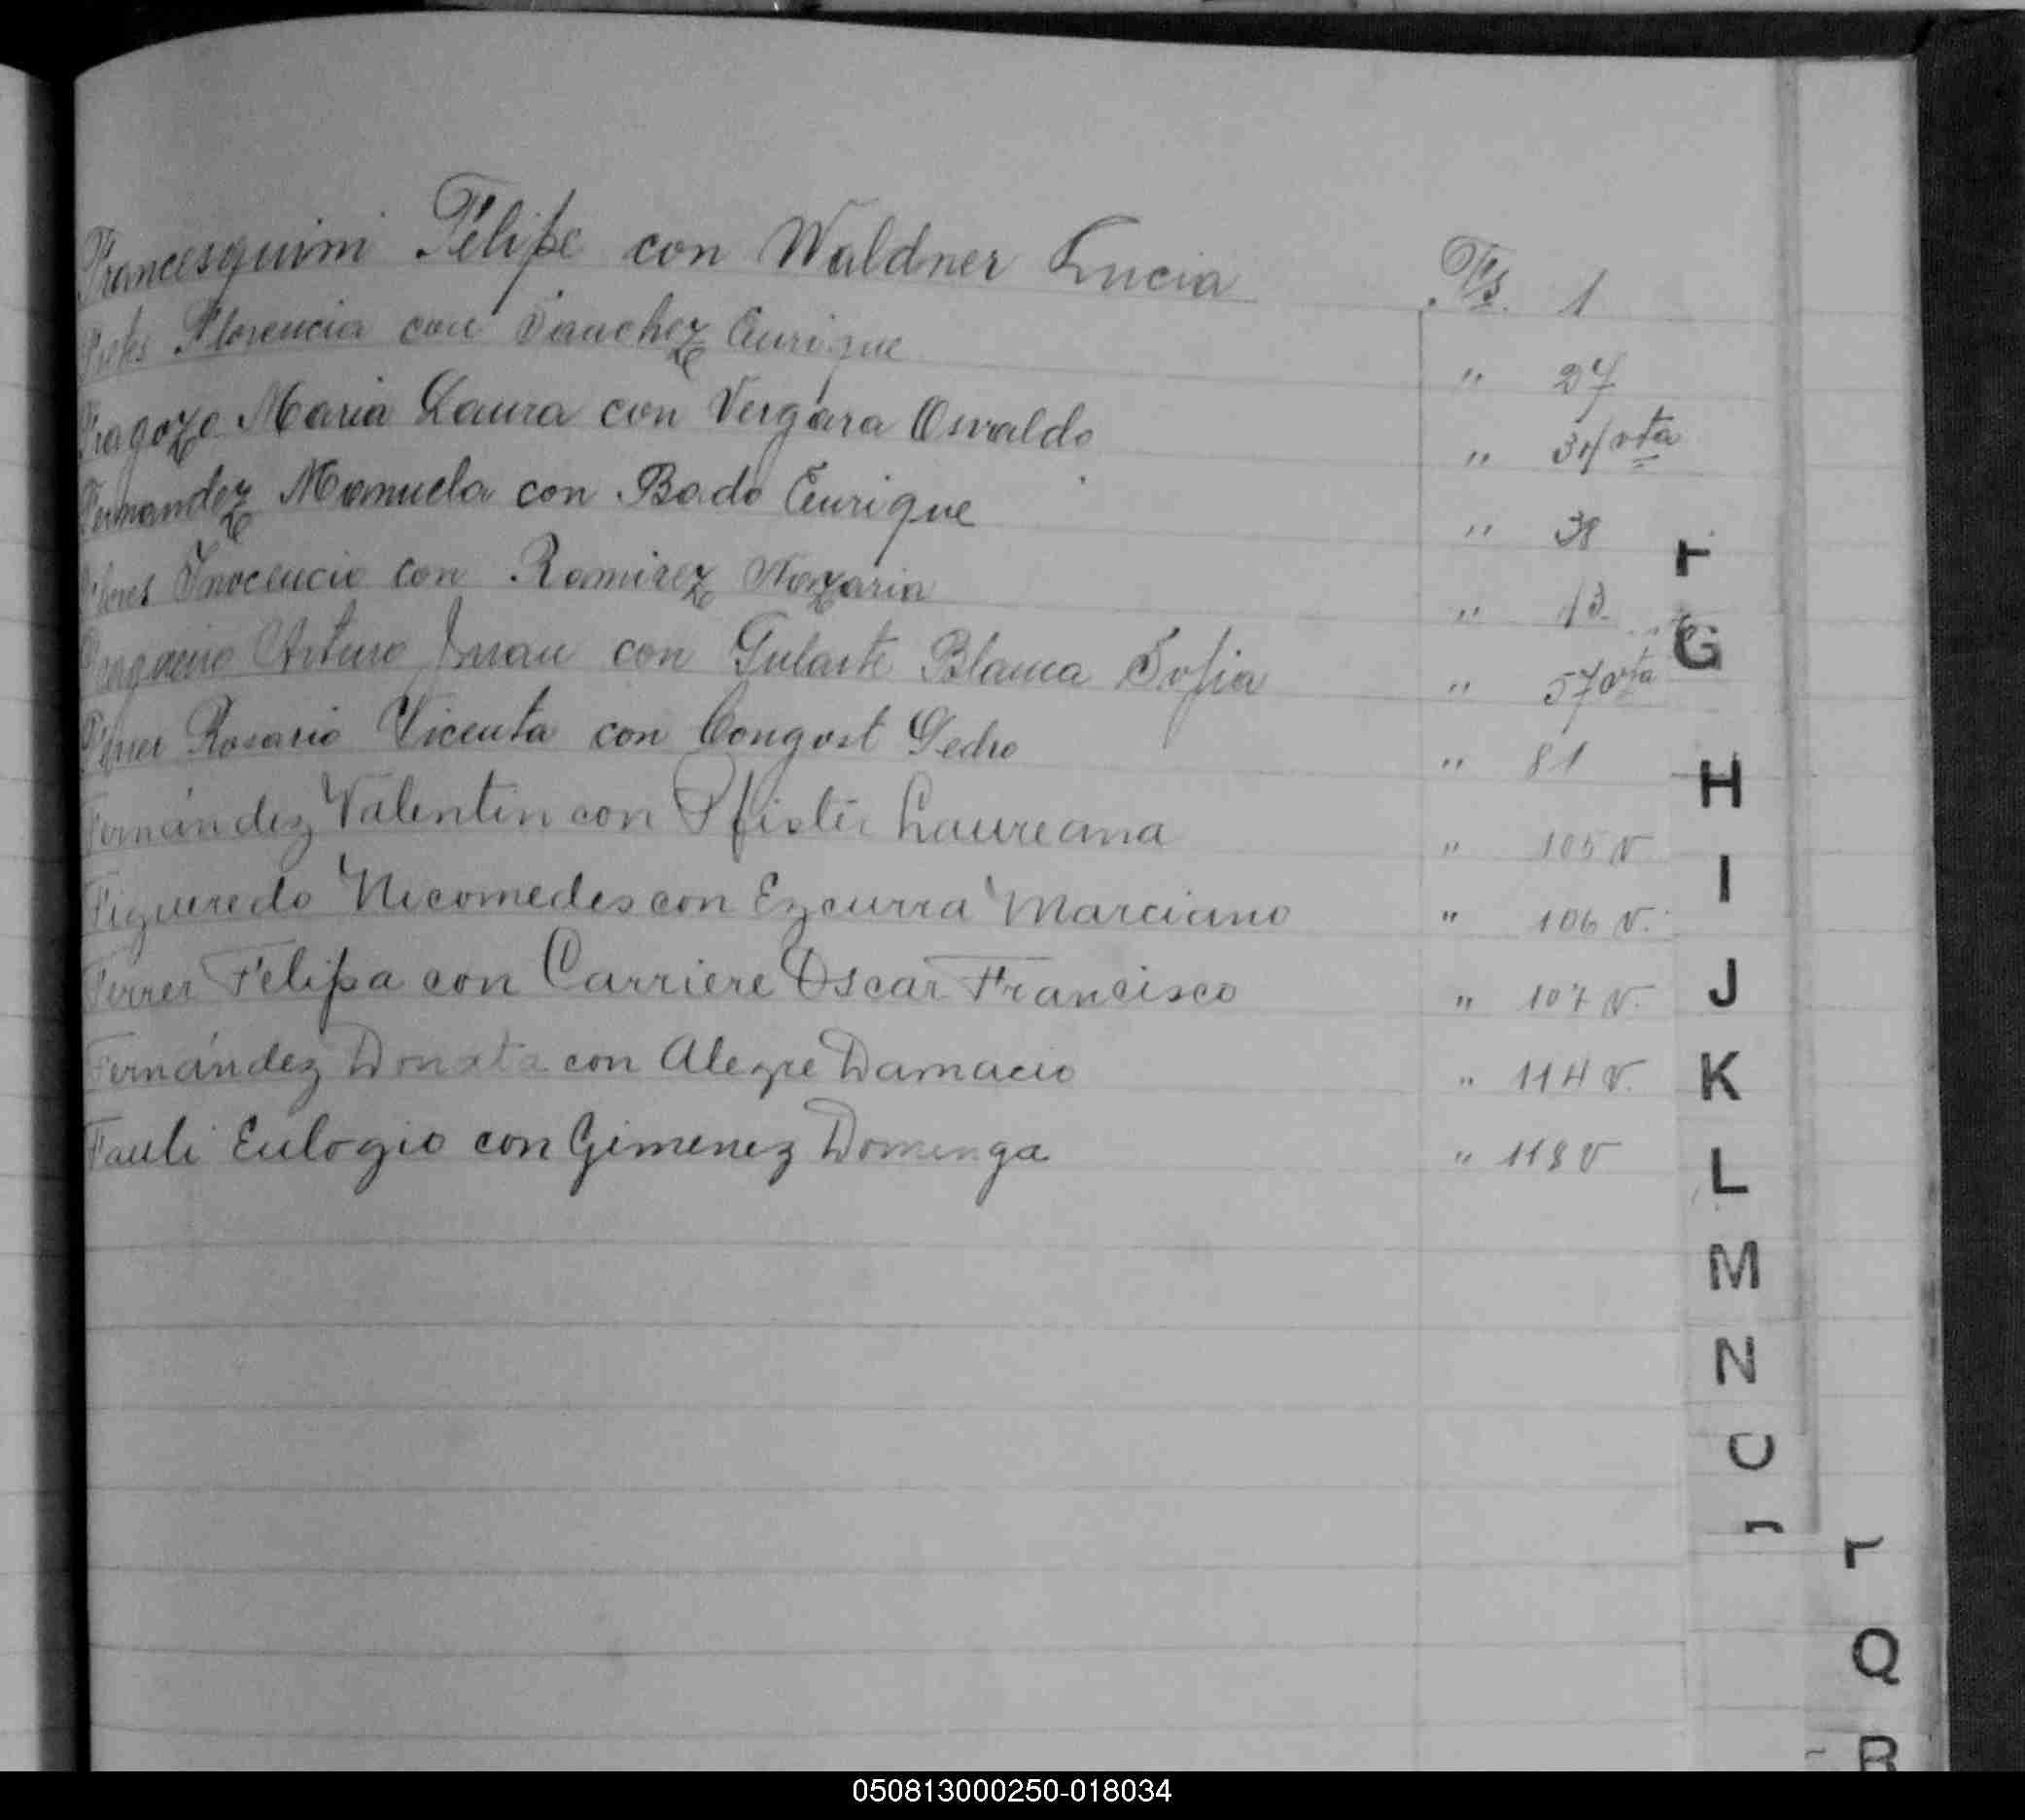 Francesquini Felipe con Waldner Lucia Fs. 1
Florencia con Sanchez Enrique " 27
Fragozo Maria Laura con Vergara Osvaldo " 34 vta
Fernandez Manuela con Bado Enrique " 38
Inocencio con Ramirez Nazaria " 43
Arturo Juan con Gularte Blanca Sofia " 57 vta
Ferrer Rosario Vicenta con Congost Pedro " 81
Fernández Valentin con Pfister Laureana " 105 v.
Figueredo Nicomedes con Ezcurra Marciano " 106 v.
Ferrer Felipa con Carriere Oscar Francisco " 107 v.
Fernández Donata con Alegre Damacio " 114 v.
Fauli Eulogio con Gimenez Dominga " 118 v
F
G
H
I
J
K
L
M
N
O
P
Q
R
050813000250-018034